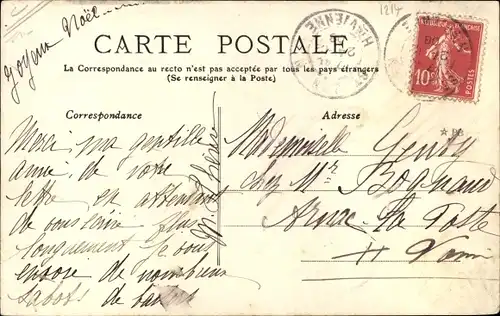 Joyeux Noël
1214
CARTE POSTALE
La Correspondance au recto n'est pas acceptée par tous les pays étrangers
(Se renseigner à la Poste)
HTE VIENNE
10c
POSTES
Correspondance
Adresse
Merci ma gentille
amie de votre
lettre en attendant
de vous écrire plus
longuement je vous
envoie de nombreux
sabots de
Mademoiselle
chez Mr
La Poste
Hte Vienne